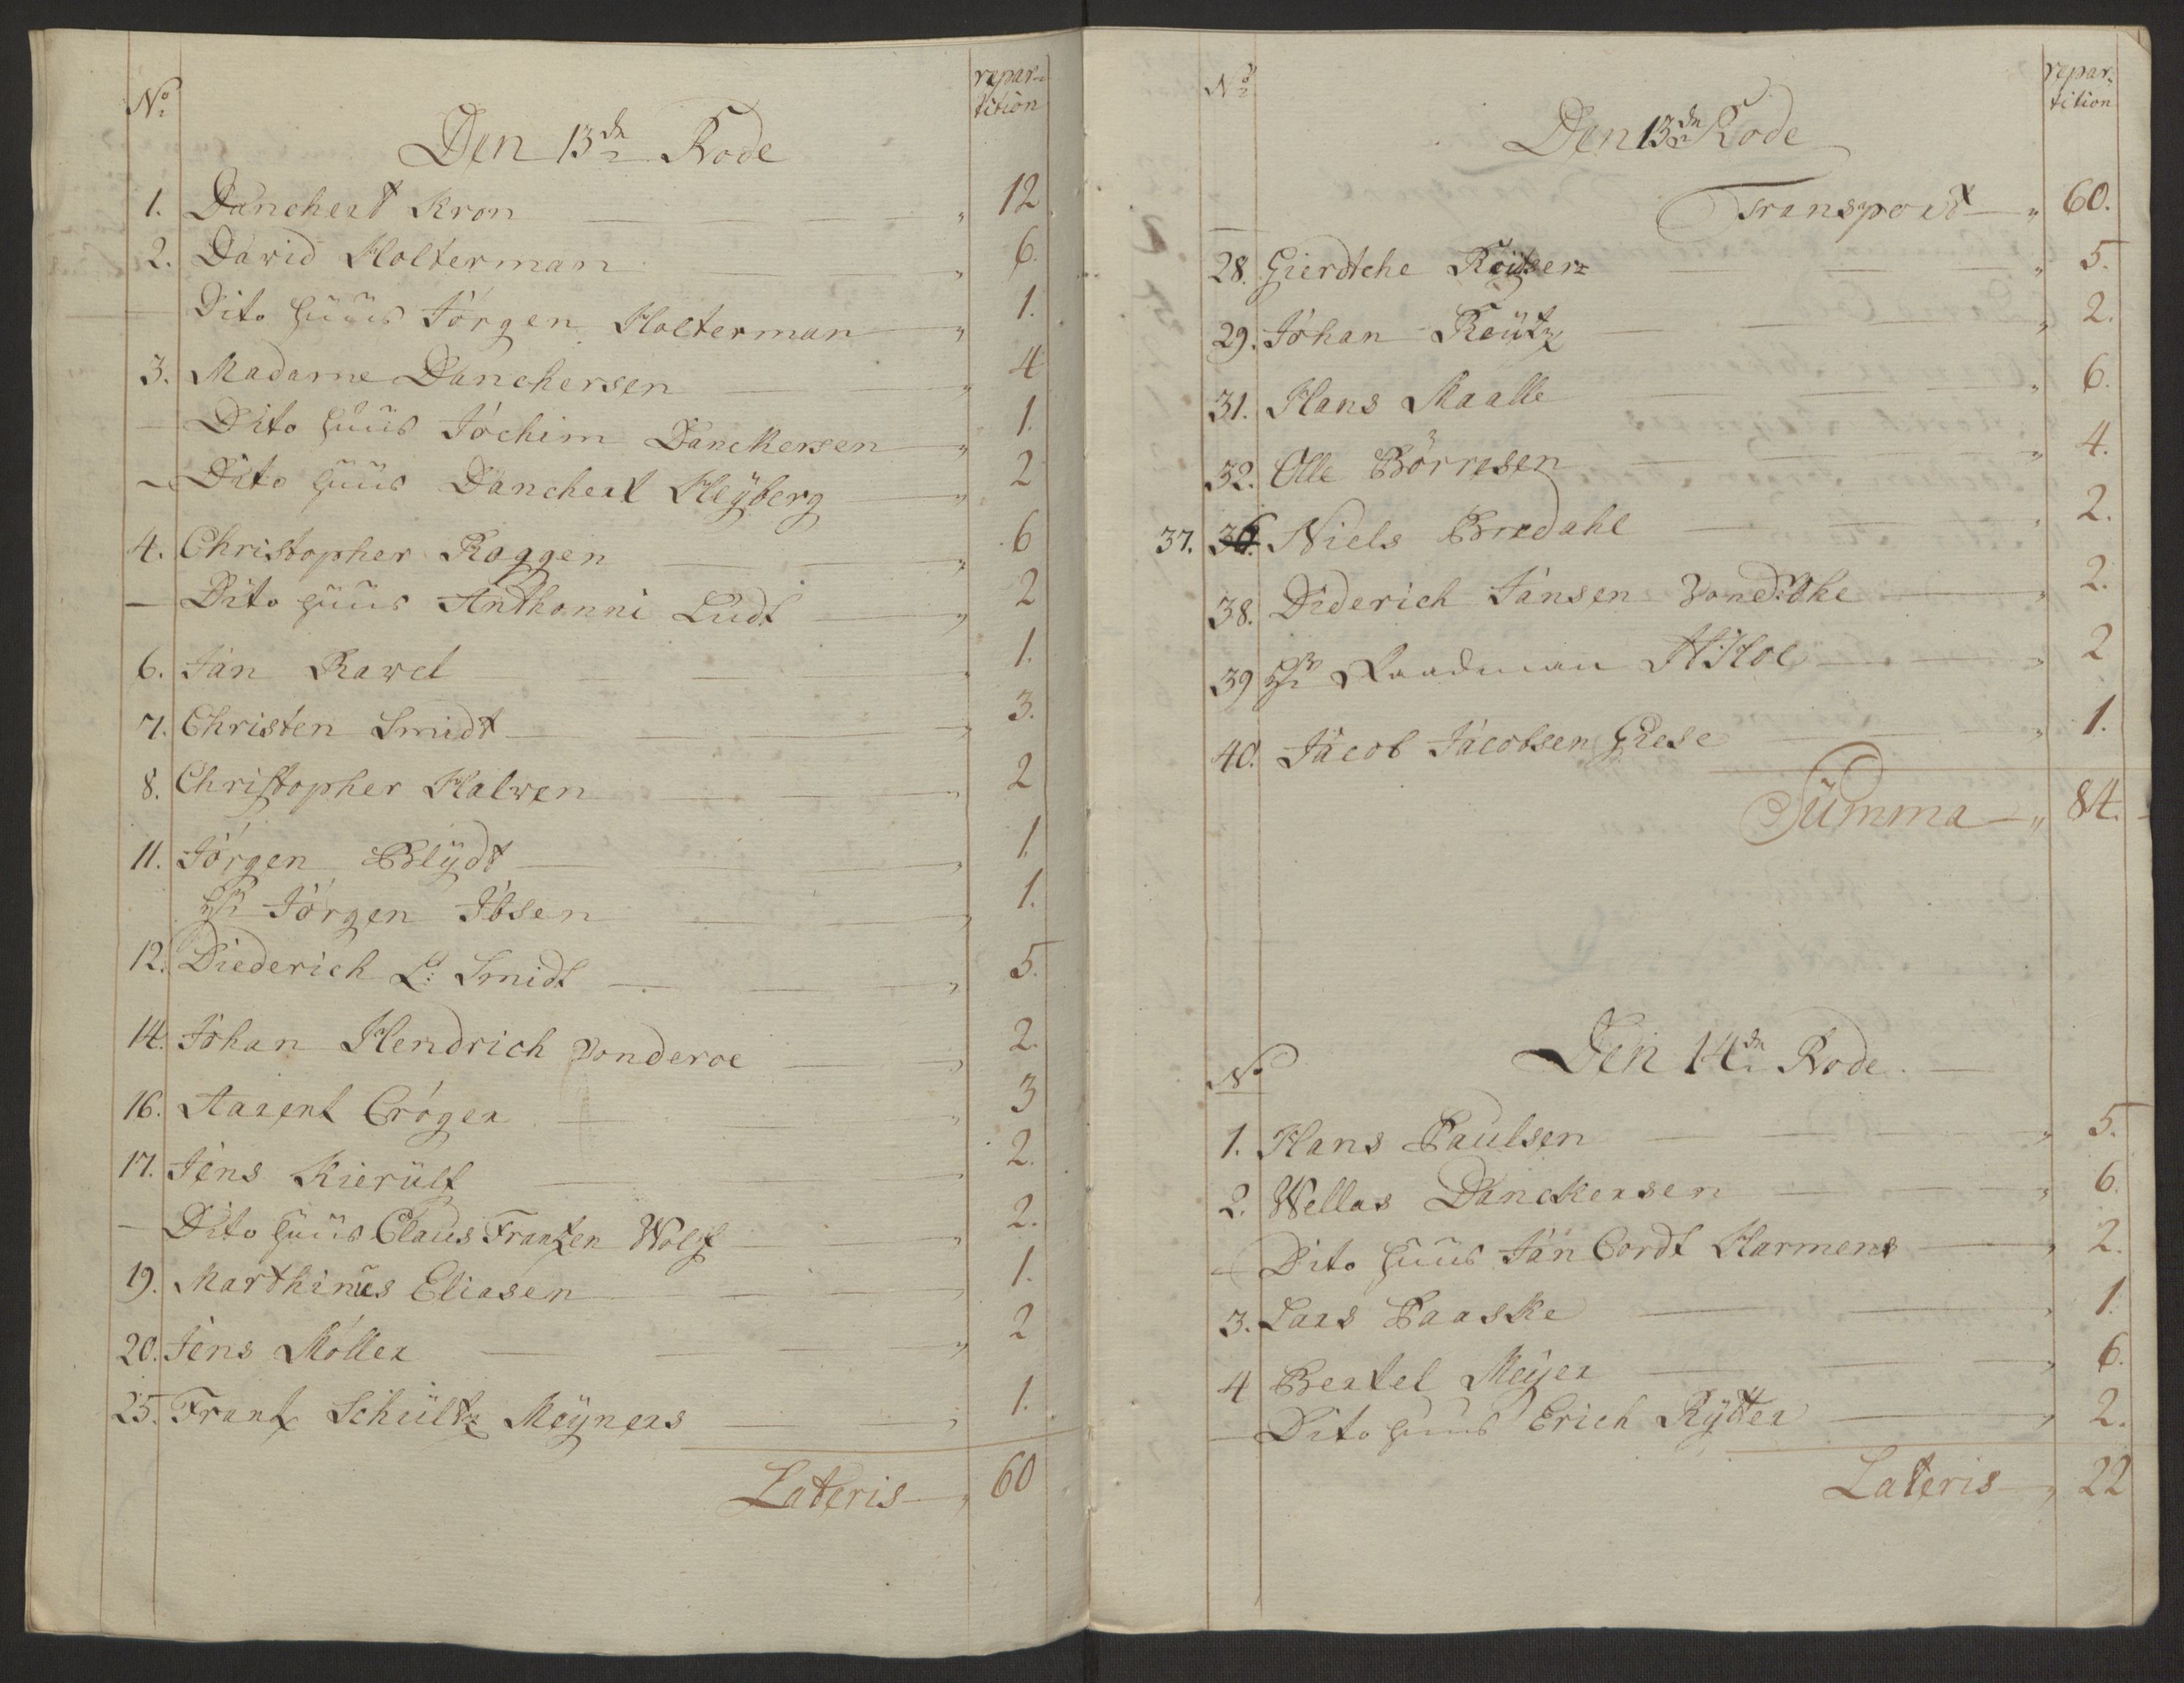 No repar-
tition
Den 13de Rode
1. Danchert Kron 12
2. David Holterman 6.
Dito huus Jörgen Holterman 1.
3. Madame Danchersen 4
Dito huus Jochim Danckersen 1.
Dito huus Danchert Heÿberg 2
4. Christopher Roggen 6
Dito huus Anthonni Ludt 2
6. Jan Rawel 1.
7. Christen Smidt 3.
8. Christopher Halwen 2
11. Jörgen Blÿdt 1.
Hr Jörgen Ibsen 1.
12. Diederich L: Smidt 5.
14. Johan Hendrich Vonderoe 2.
16. Aarent Cröger 3
17. Jens Kierülf 2.
Dito huus Claus Frantzen Wolff 2.
19. Marthinus Eliasen 1.
20. Jens Möller 2
25. Frantz Schultz Meÿners 1.
Lateris 60
No repar-
tition
Den 13de Rode
Transport 60.
28. Gierdtche Reützer 5.
29. Johan Reütz 2.
31. Hans Maalle 6.
32. Olle Börresen 4.
37. 36. Niels Bredahl 2.
38. Diderich Jansen Vondohe 2.
39 Hr Raadman Hoe 2
40. Jacob Jacobsen Giese 1.
Summa 84.
No Den 14de Rode
1. Hans Paulsen 5.
2. Wellas Danckersen 6.
Dito huus Jan Cordt Harmens 2.
3. Lars Paaske 1.
4 Bertel Meÿer 6.
Dito huus Erich Rÿtter 2.
Lateris 22